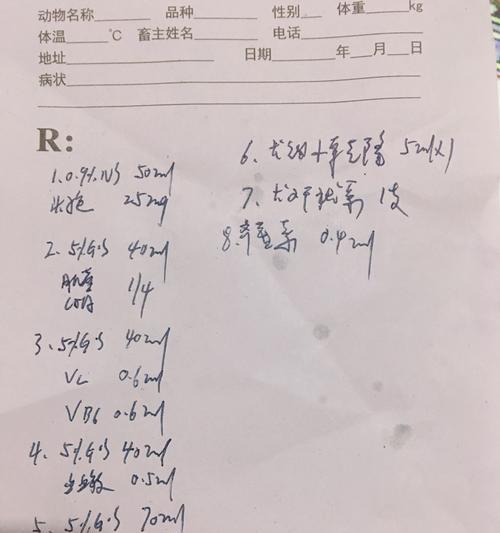 动物名称 品种 性别 体重 kg
体温 ℃ 畜主姓名 电话
地址 日期 年 月 日
病状
R:
1. 0.9% NS 50ml
25mg
2. 5% G's 40ml
肌苷
COA 1/4
3. 5% G's 40ml
VC 0.6ml
VB6 0.6ml
4. 5% G's 40ml
0.5ml
5. 5% G's 70ml
6、犬细小单克隆 5ml
7、犬干扰素 1支
8. 0.4ml